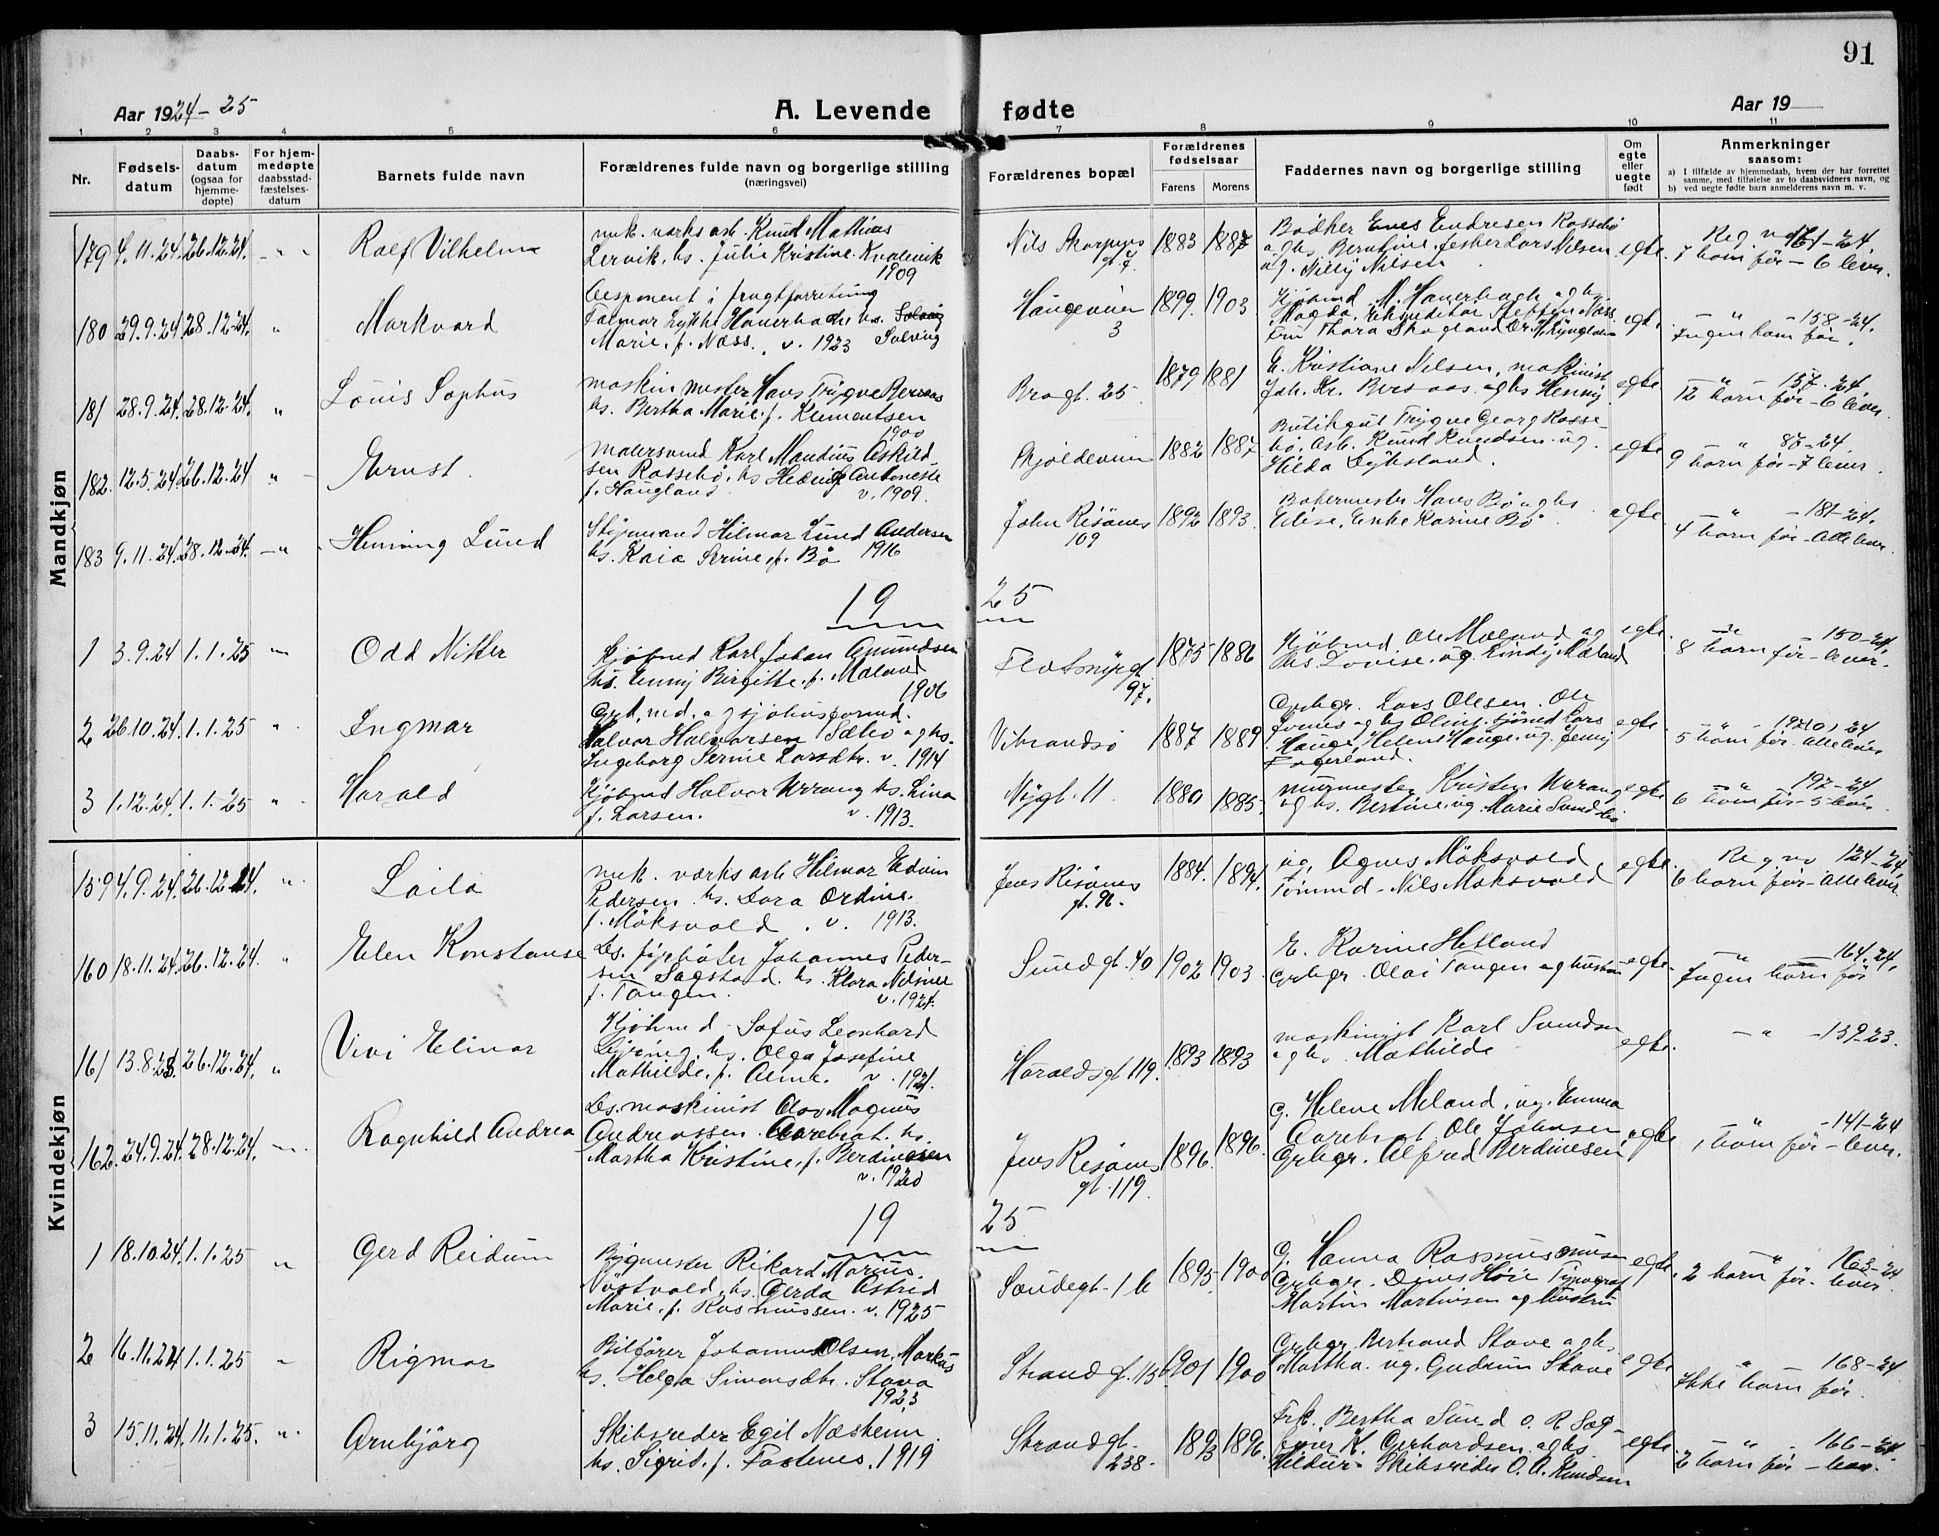 91
Aar 1924-25
A. Levende fødte
Aar 19
1 2 3 4 5 6 7 8 9 10 11
Nr.
Fødsels-
datum
Daabs-
datum
(ogsaa for
hjemme-
døpte)
For hjem-
medøpte
daabsstad-
fæstelses-
datum
Barnets fulde navn
Forældrenes fulde navn og borgerlige stilling
(næringsvei)
Forældrenes bopæl
Forældrenes
fødselsaar
Farens Morens
Faddernes navn og borgerlige stilling
Om
egte
eller
uegte
født
Anmerkninger
saasom:
a) I tilfælde av hjemmedaab, hvem der har forrettet
samme, med tilføielse av to daabsvidners navn, og
b) ved uegte fødte barn anmelderens navn m. v.
Mandkjøn
179 4.11.24. 26.12.24. - " Rolf Vilhelm
mek. verks arb. Knud Mathias
Lervik, hs. Julie Kristine Kvalevik
1909
Nils Skorpens
gt. 7. 1883 1887
Bødker Enes Endresen Rossebø
og hs Berntine, fesker Lars Nilsen
ug. Nilly Nilsen
egte. Reg. no 161-24.
7 barn før - 6 lever.
180 29.9.24 28.12.24. " Markvard
Desponent i frugtforretning
Falmar Lykke Hauerbach hs. Solveig
Marie, f. Næss, v. 1923 Solveig
Haugeveien
3 1899. 1903.
Kjøbmd. M. Hauerbach og hs
Magda, Ekspeditør Steffen Næss
Fru Thora Skogland
egte. - " - 158-24.
Ingen barn før.
181 28.9.24. 28.12.24. " Louis Sophus
maskin mester Hans Trygve Bersaas
hs. Bertha Marie f. Klementsen
1900
Brogt. 25. 1879 1881
E. Kristiane Nilsen, maskinist
Joh. Kr. Bersaas og hs Henny
egte - " 157-24
12 barn før - 6 lever.
182. 12.5.24 26.12.24 " Ernst.
malersvend Karl Maudius Askild
sen Rossebø, hs Hedvig Antoneste
f. Haugland v. 1909.
Skjoldeveien 1882 1887
Butikgut Trygve Georg Rosse
bø, Arb. Knud Knudsen ug.
Hilda Lyksland.
egte - " 87-24.
9 barn før - 7 lever.
183 9.11.24. 28.12.24. - " Henning Lund
Styrmand Hilmar Lund Andersen
hs. Kaia Serine f. Bø 1916
John Risönes
109 1892 1893.
Bakermester Hans Bø og hs
Elise, Enke Karine Bø
egte - " - 181-24.
4 barn før - Alle lever.
19 25
1 3.9.24 1.1.25 " Odd Nitter
Kjøbmd Karl Johan Amundsen
hs. Enny Birgitte, f. Mæland
1906
Flotmyrgt.
97. 1875 1886
Kjøbmd. Ole Mæland og
hs. Lovise, ug. Lindy Mæland
egte. - " - 150-24.
8 barn før - lever.
2 26.10.24. 1.1.25 " Ingmar
Grd, md. og sjøhusformd.
Halvor Halvorsen Sæbø og hs.
Ingeborg Serine Larsdtr. v. 1914
Vibrandsø 1887 1889
Grbgr. Lars Olesen. Ole
og hs Oline, Sjömd Lars
Hauge, Helene Hauge, ug. Jenny
Fagerland.
egte - " - 24
5 barn før. Alle lever
3 1.12.24. 1.1.25 " Harald
Kjøbmd Halvor Urrang hs. Lina
f. Larsen. v. 1913.
Nygt. 11. 1880 1885.
murmester Kristen Urrang
og hs. Bertine, ug. Marie Sundsbø
egte - " 197-24
6 barn før - 5 lever
Kvindekjøn
159 4.9.24. 26.12.24. " Laila
mek. verks arb Hilmar Edvin
Pedersen hs. Dora Ordine.
f. Møksvold. v. 1913.
Jens Risönes
gt. 96. 1884. 1894.
ug. Agnes Møksvold,
Tømmd - Nils Møksvold
egte. Reg no 124-24.
6 barn før - Alle lever.
160 18.11.24. 26.12.24. " Elen Konstanse
Ls. fyrbøter Johannes Peder-
sen Sagstad. hs. Klara Nelsine
f. Tangen. v. 1924.
Sundgt. 40 1902 1903.
E. Karine Hetland
Grbgr. Olai Tangen og hustru
egte. - " 164.24.
Ingen barn før
161 13.8.23. 26.12.24. " Vivi Elinor
Kjøbmd. Sofus Leonhard
hs. Olga Josefine
Mathilde, f. Alme. v. 1921.
Haraldsgt 119. 1893 1893
maskinist Karl Svendsen
og hs. Mathilde -
egte. - " - 139-23.
162. 24.9.24. 28.12.24. " Ragnhild Andrea
Ls. maskinist Olav Magnus
Andreassen Aarebrot, hs.
Martha Kristine, f. Berdinesen
v. 1920
Jens Risönes
gt. 119. 1896. 1896.
G. Helene Meland, ug. Emma
Aarebrot, Ole Johnsen
Grbgr. Alfred Berdinesen
egte - " - 141-24
1 barn før - lever.
19 25
1 18.10.24. 1.1.25 " Gerd Reidun
Bygmester Rikard Marius
Nöstvold, hs. Gerda Astrid
Marie, f. Rasmussen. v. 1925
Sørdegt. 1 b 1895. 1900
G. Hanna Rasmussen
Grbgr. Denes Høie Typograf
Martin Martinsen og hustru
egte. " 163-24
2 barn før. lever.
2 16.11.24 1.1.25 " Rigmor
Bilfører Johannes Olsen. Markus
hs. Helga Simonsdtr. Stava
1923
Strandg. 156 1901 1900
Grbgr. Bertrand Stave og hs.
Martha. ug. Gudrun Stave
egte - " 168-24
Ikke barn før.
3 15.11.24. 11.1.25. " Arnbjörg
Skibsreder Egil Næsheim
hs. Sigrid, f. Fostenes. 1919
Strandgt.
238. 1893 1896.
Frk. Bertha Sund o. R Sag-
fører K. Gerhardsen og hs
Hildur - Skibsreder O. A. Knudsen
egte. - " - 166-24
2 barn før - lever.